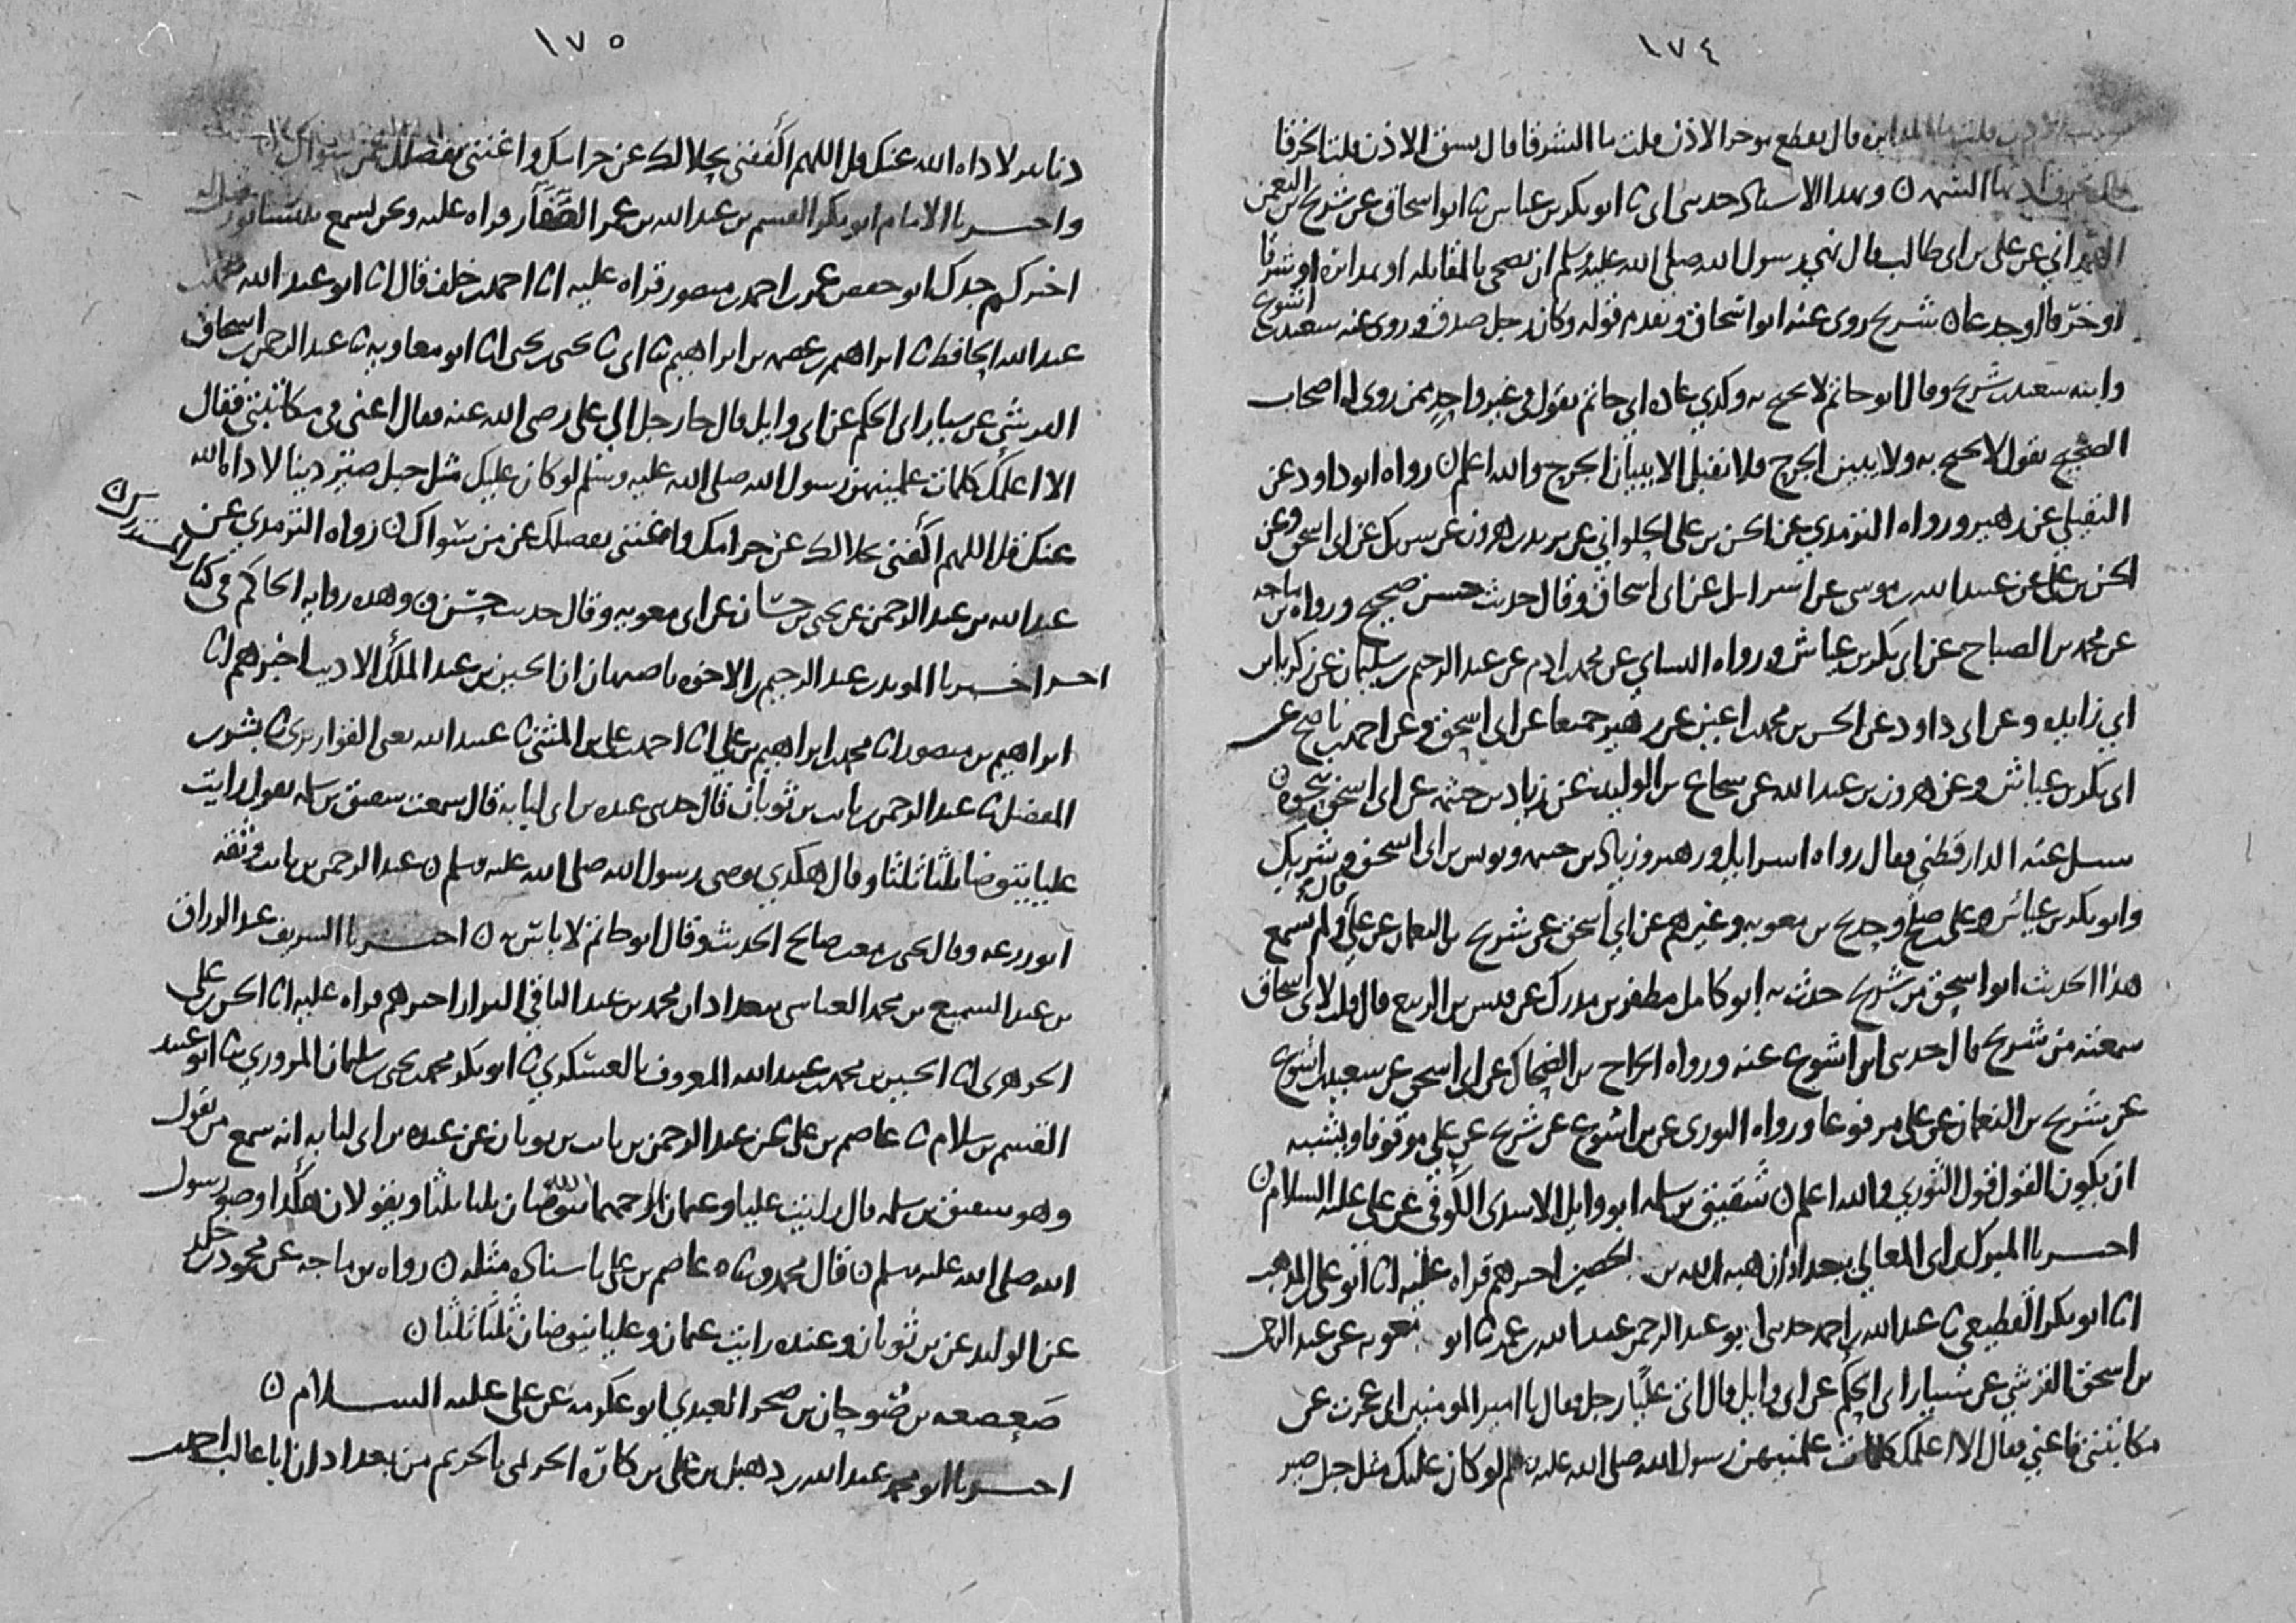 ١٧٤
قال يقطع موخر الاذن قلت ما الشرقا قال يشق الاذن قلت الخرقا
السمه ن وبهذا الاسناد حدثني ابي ثنا ابو بكر بن عياش ثنا ابو اسحاق عن شريح بن النعمن
الهمداني عن علي بن ابي طالب قال نهي رسول الله صلى الله عليه وسلم ان يضحى بالمقابله او بمدابره او شرقا
شريح روى عنه ابو اسحاق وتقدم قوله وكان رجل صدق وروى عنه سعيد بن اشوع
وابنه سعيد بن شريح وقال ابو حاتم لا يحتج به وكذي عادة ابي حاتم يقول في غير واحد ممن روى له اصحاب
الصحيح يقول لا يحتج به ولا يبين الجرح ولا نقبل الا ببيان الجرح والله اعلم ن رواه ابو داود عن
النفيلي عن زهير ورواه الترمذي عن الحسن بن علي الحلواني عن يزيد بن هرون عن شريك عن ابي اسحق وعن
الحسن بن علي عن عبيد الله بن موسى عن اسرائيل عن ابي اسحاق وقال حديث حسن صحيح ورواه بن ماجه
عن محمد بن الصباح عن ابي بكر بن عياش ورواه النساي عن محمد بن ادم عن عبد الرحيم بن سليمان عن زكريا بن
ابي زايده وعن ابي داود عن الحسن بن محمد بن اعين عن زهير جميعا عن ابي اسحق وعن احمد بن ناصح عن
ابي بكر بن عياش وعن هرون بن عبد الله عن شجاع بن الوليد عن زياد بن خيثمه عن ابي اسحق نحوه ن
سيل عنه الدارقطني فقال رواه اسرايل وزهير وزياد بن خيثمه ويونس بن ابي اسحق وشريك
وابو بكر بن عياش وعلي بن صالح وحديج بن معويه وغيرهم عن ابي اسحق عن شريح بن النعمان عن علي قال ولم يسمع
هذا الحديث ابو اسحق من شريح حدث به ابو كامل مظفر بن مدرك عن قيس بن الربيع قال قلت لابي اسحاق
سمعته من شريح قال حدثني ابن اشوع عنه ورواه الجراح بن الضحاك عن ابي اسحق عن سعيد بن اشوع
عن شريح بن النعمان عن علي مرفوعا ورواه الثوري عن بن اشوع عن شريح عن علي موقوفا ويشبه
ان يكون القول قول الثوري والله اعلم ن شقيق بن سلمه ابو وايل الاسدي الكوفي عن علي عليه السلام ن
اخبرنا المبارك بن ابي المعالي ببغداد ان هبه الله بن الحصين اخبرهم قراه عليه انا ابو علي بن المذهب
انا ابو بكر القطيعي ثنا عبد الله بن احمد حدثني ابو عبد الرحمن عبد الله بن عمر ثنا ابو معويه عن عبد الرحمن
بن اسحق القرشي عن سيار ابي الحكم عن ابي وايل قال اتى عليا رجل فقال يا امير المومنين اني عجزت عن
مكاتبتي فاعني فقال الا اعلمك كلمات علمنيهن رسول الله صلى الله عليه وسلم لو كان عليك مثل جبل صير
١٧٥
دنانير لاداه الله عنك قل اللهم اكفني بحلالك عن حرامك واغنني بفضلك عن سواك
واخبرنا الامام ابو بكر القسم بن عبد الله بن عمر الصفار قراه عليه ونحن نسمع بنيسابور
اخبركم جدك ابو حفص عمر بن احمد بن منصور قراه عليه انا احمد بن خلف قال انا ابو عبد الله محمد بن
عبد الله الحافظ ثنا ابراهيم بن عصمه بن ابراهيم ثنا ابي ثنا يحيى بن يحيى انا ابو معاويه ثنا عبد الرحمن بن اسحاق
القرشي عن سيار ابي الحكم عن ابي وايل قال جا رجل الي علي رضي الله عنه فقال اعني في مكاتبتي فقال
الا اعلمك كلمات علمنيهن رسول الله صلى الله عليه وسلم لو كان عليك مثل جبل صير دينا لاداه الله
عنك قل اللهم اكفني بحلالك عن حرامك واغنني بفضلك عن من سواك ن رواه الترمذي عن
عبد الله بن عبد الرحمن عن يحيى بن حسان عن ابي معويه وقال حديث حسن ن وهذه رواية الحاكم في كتاب المستدرك ن
اخبرنا المويد بن عبد الرحيم بن الاخوه باصبهان ان الحسين بن عبد الملك الاديب اخبرهم انا
ابراهيم بن منصور انا محمد بن ابراهيم بن علي انا احمد بن علي بن المثنى ثنا عبيد الله يعني القواريري ثنا بشر بن
المفضل ثنا عبد الرحمن بن ثابت بن ثوبان قال حدثني عبده بن ابي لبابه قال سمعت شقيق بن سلمه يقول رايت
عليا يتوضا ثلثا ثلثا وقال هكذي توضى رسول الله صلى الله عليه وسلم ن عبد الرحمن بن ثابت وثقه
ابو زرعه وقال يحيى بن معين صالح الحديث وقال ابو حاتم لا باس به ن اخبرنا الشريف عبد الرزاق
بن عبد السميع بن محمد العباسي ببغداد ان محمد بن عبد الباقي البزار اخبرهم قراه عليه انا الحسن بن علي
الجوهري انا الحسين بن محمد بن عبيد الله المعروف بالعسكري ثنا ابو بكر محمد بن يحيى بن سليمان المروزي ثنا ابو عبيد
القسم بن سلام ثنا عاصم بن علي عن عبد الرحمن بن ثابت بن ثوبان عن عبده بن ابي لبابه انه سمع من يقول
وهو شقيق بن سلمه قال رايت عليا وعثمان رحمهما الله يتوضان ثلثا ثلثا ويقولان هكذا وضو رسول
الله صلى الله عليه وسلم ن قال محمد وثناه عاصم بن علي باسناده مثله ن رواه بن ماجه عن محمود بن خلد
عن الوليد عن بن ثوبان وعنده رايت عثمان وعليا يتوضان ثلثا ثلثا ن
صعصعه بن صوحان بن حجر العبدي ابو عكرمه عن علي عليه السلام ن
اخبرنا ابو محمد عبد الله بن دهبل بن علي بن كاره الحريمي بالحريم من بغداد ان ابا غالب احمد